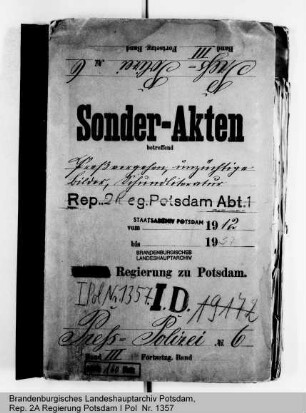 Band III Fortsetzg. Band
Press-Polizei № 6
Sonder-Akten
betreffend
Preßvergehen, unzüchtige
Bilder, Schundliteratur
Rep. 2A Reg. Potsdam Abt. 1
STAATSARCHIV POTSDAM
vom 1912
bis 19
BRANDENBURGISCHES
LANDESHAUPTARCHIV
Regierung zu Potsdam.
I Pol Nr. 1357. I.D. 19172
Press-Polizei № 6
Band III Fortsetzg. Band
Brandenburgisches Landeshauptarchiv Potsdam,
Rep. 2A Regierung Potsdam I Pol Nr. 1357